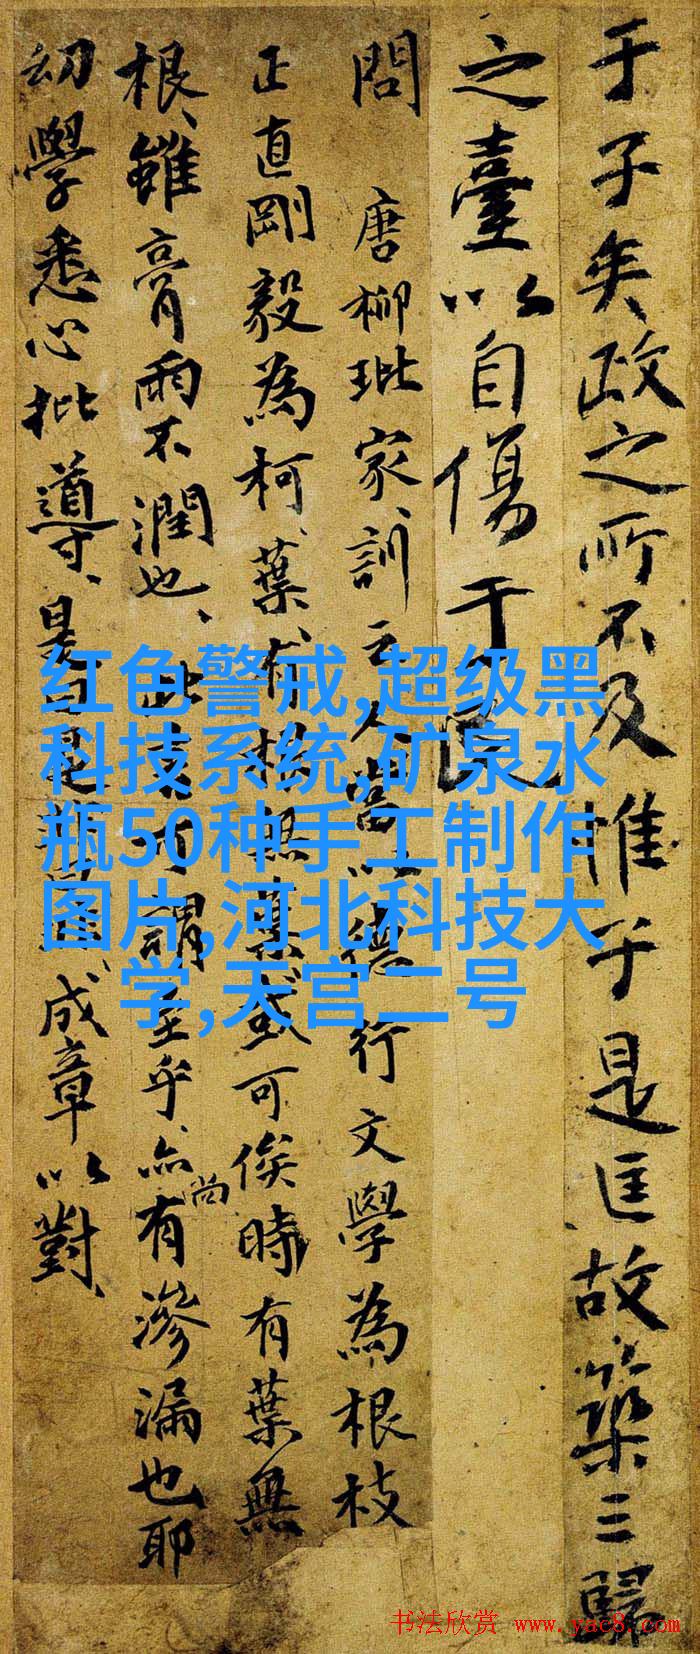 于子矣政之所不及惟于是匡故築三歸
之臺以自傷于民
問 唐柳玭家訓云人當以德行文學為根枝
正直剛毅為柯葉有根無葉或可俟時有葉無
根雖膏雨不潤也此言可謂至乎亦尚有滲漏也耶
幼學悉心批導
成章以對
红色警戒,超级黑
科技系统,矿泉水
瓶50种手工制作
图片,河北科技大
学,天宫二号
书法欣赏 www.yac8.com